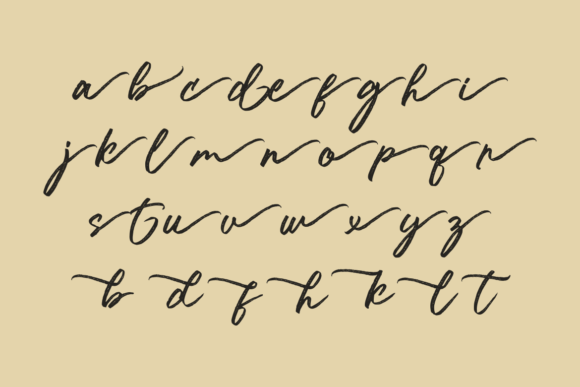 a b c d e f g h i
j k l m n o p q r
s t u v w x y z
b d f h k l t